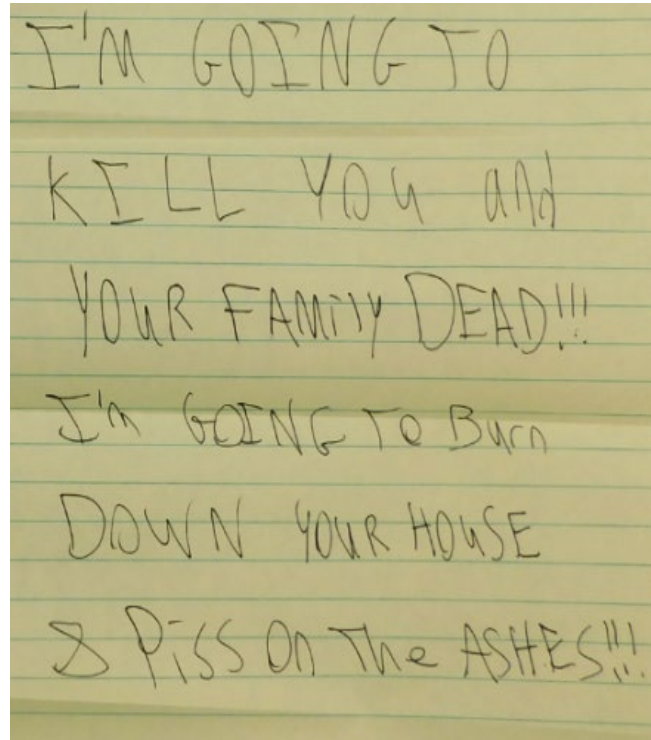 I'M GOING TO
KILL YOU and
YOUR FAMilY DEAD!!!
I'm GOING To Burn
DOWN YOUR HOUSE
& PiSS On The ASHES!!!